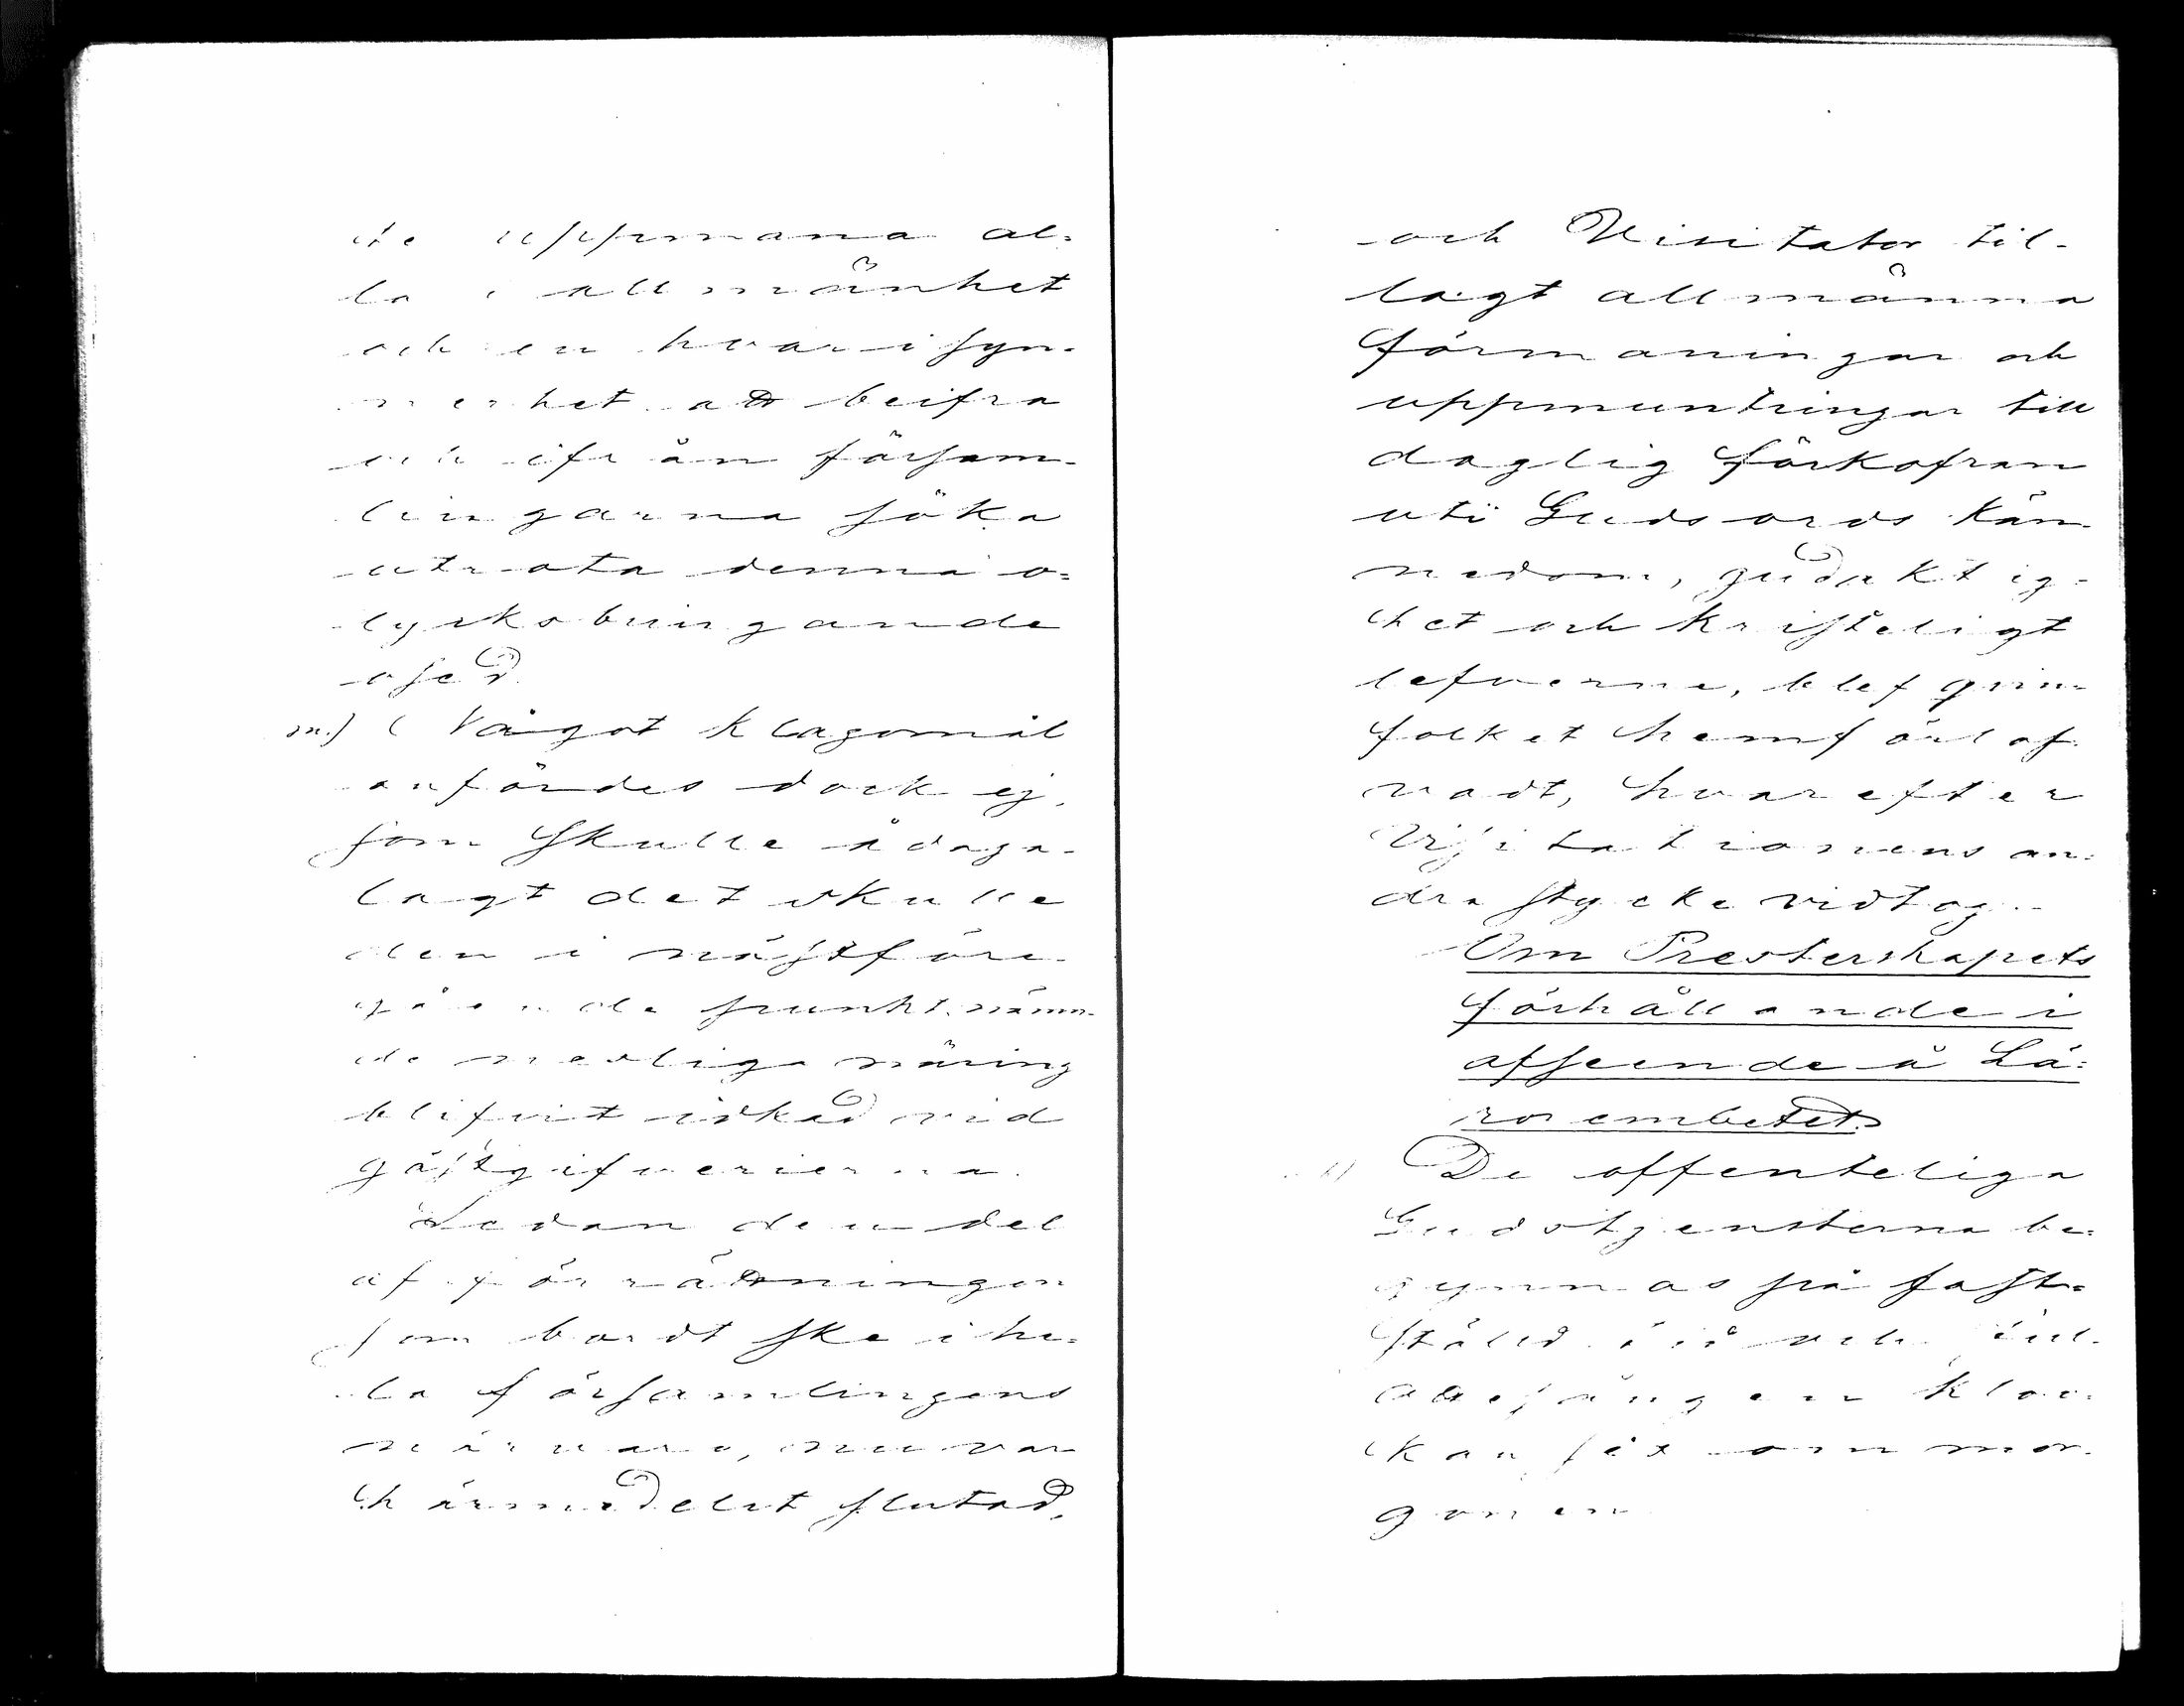 de uppmana al=
la i allmänhet
och en hvar i syn-
nerhet att beifra
och ifrån försam-
lingarna söka
utrota denna o=
lycksbringande
osed.
m.) Något klagomål
anfördes dock ej,
som skulle ådaga-
lagt det skulle
den i nästföre-
gående punkt nämn-
de nedliga näring
blifvit idkad vid
gästgifverierna.
Sedan den del
af förrättningen
som bordt ske i he=
la församlingens
närvaro, nu var
härmedelst slutad,
och Visitator til-
lagt allmänna
förmaningar och
uppmuntringar till
daglig förkofran
uti Guds ords kän-
nedom, gudaktig-
het och kristeligt
lefverne, blef qvin-
folket hemförlof-
vadt, hvarefter
Visitationens an=
dra stycke vidtog.
Om Presterskapets
förhållande i
afseende å Lä=
roembetet.
1) De offenteliga
Gudstjensterna be=
gynnas på fast=
ställd tid och
ottesången kloc-
kan sex om mor-
gonen